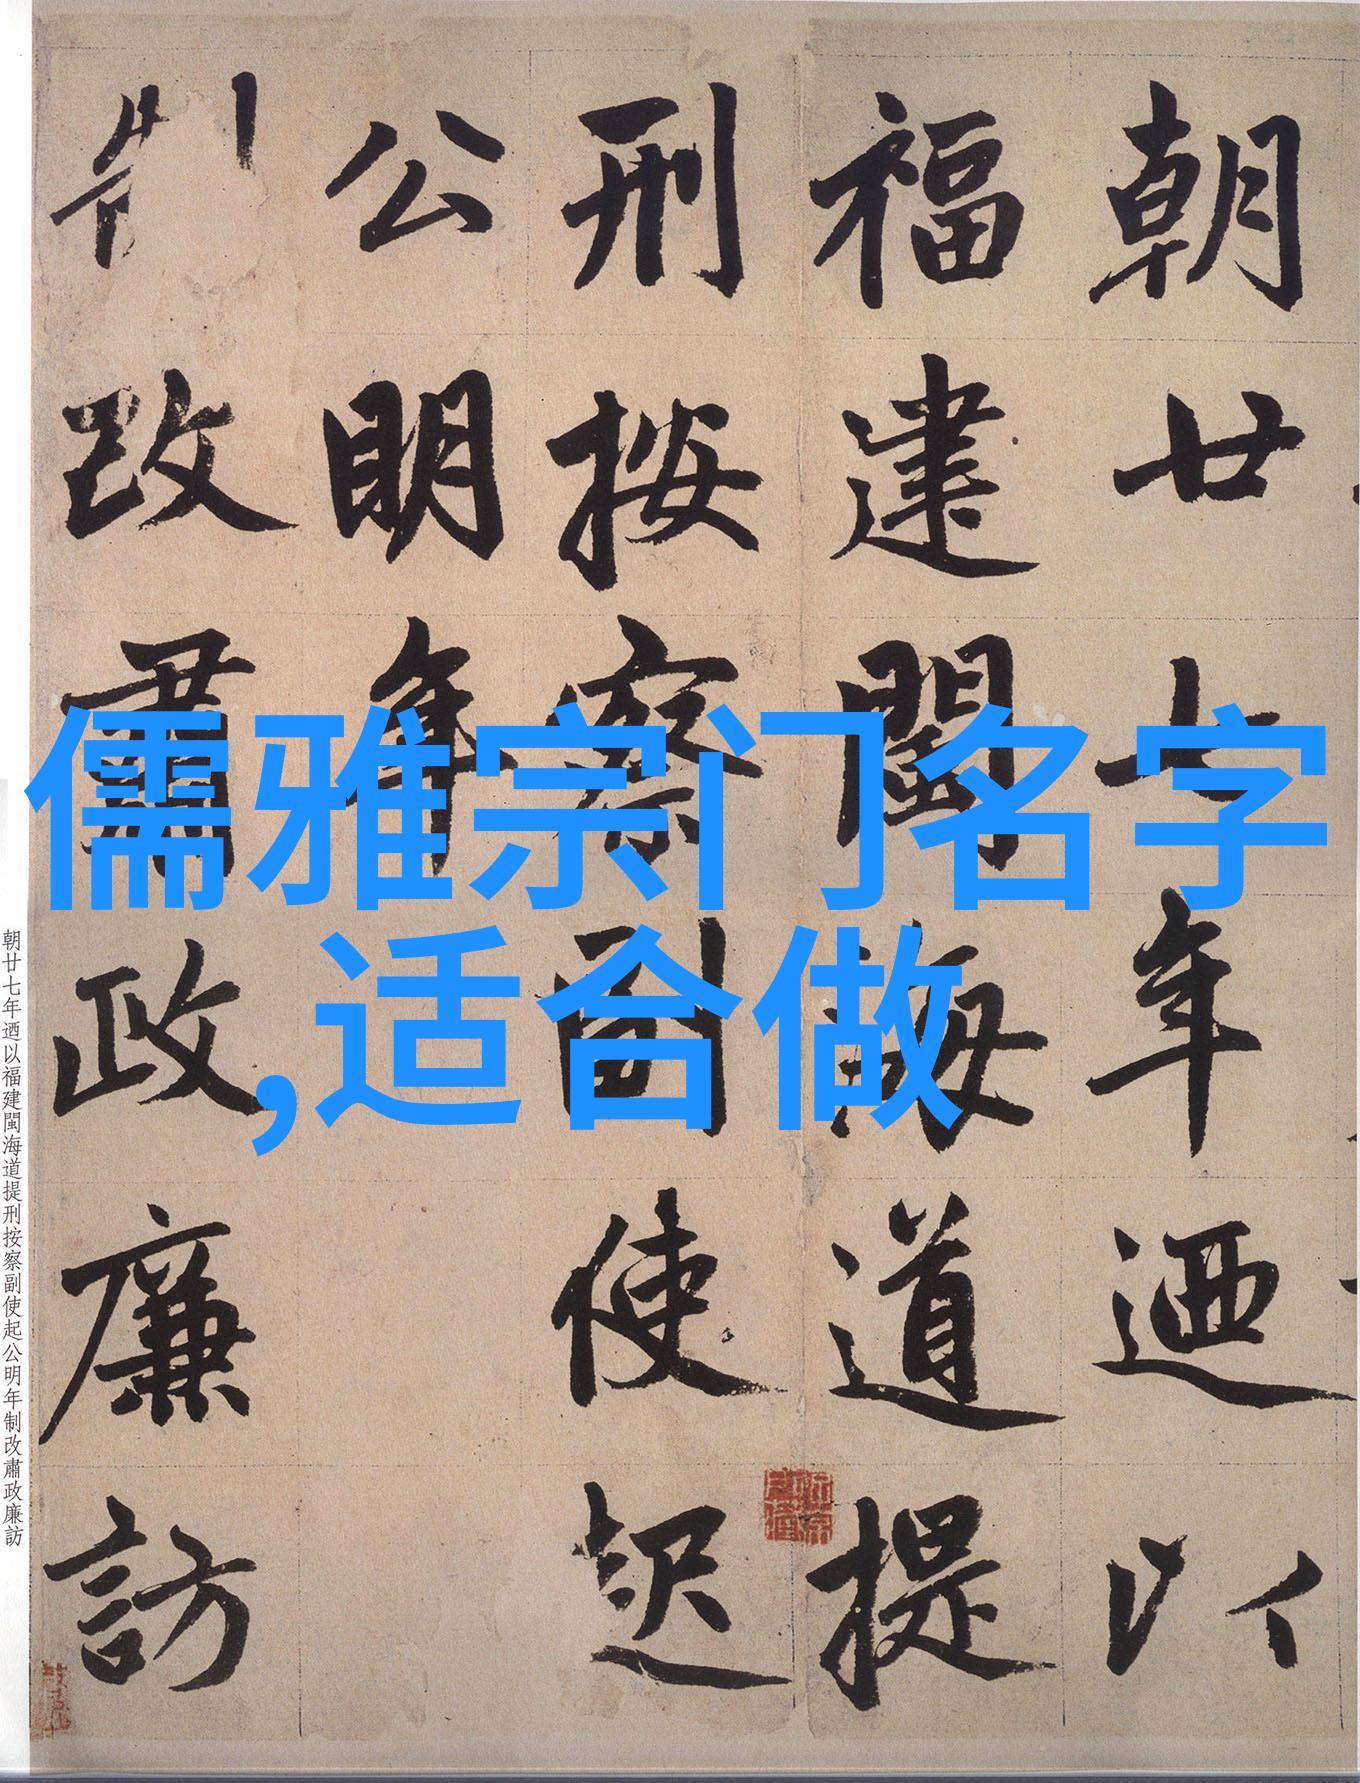 朝廿七年迺以
福建閩海道提
刑按察副使起
公明年
制改肅政廉訪
儒雅宗门名字
,适合做
朝廿七年迺以福建閩海道提刑按察副使起公明年制改肅政廉訪